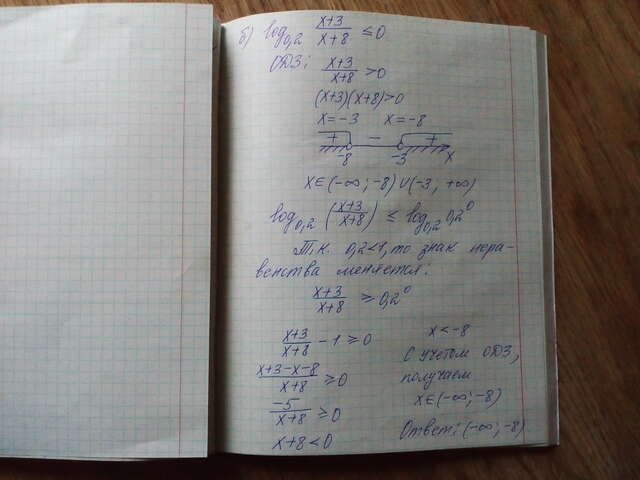 б) log₀,₂ (x+3)/(x+8) ≤ 0
ОДЗ: (x+3)/(x+8) > 0
(x+3)(x+8)>0
x=-3 x=-8
+ - +
-8 -3 x
x∈(-∞;-8)∪(-3;+∞)
log₀,₂ ((x+3)/(x+8)) ≤ log₀,₂ 0,2⁰
Т.к. 0,2<1, то знак нера-
венства меняется:
(x+3)/(x+8) ≥ 0,2⁰
(x+3)/(x+8) - 1 ≥ 0
(x+3-x-8)/(x+8) ≥ 0
-5/(x+8) ≥ 0
x+8 < 0
x < -8
С учетом ОДЗ,
получаем
x∈(-∞;-8)
Ответ: (-∞;-8)